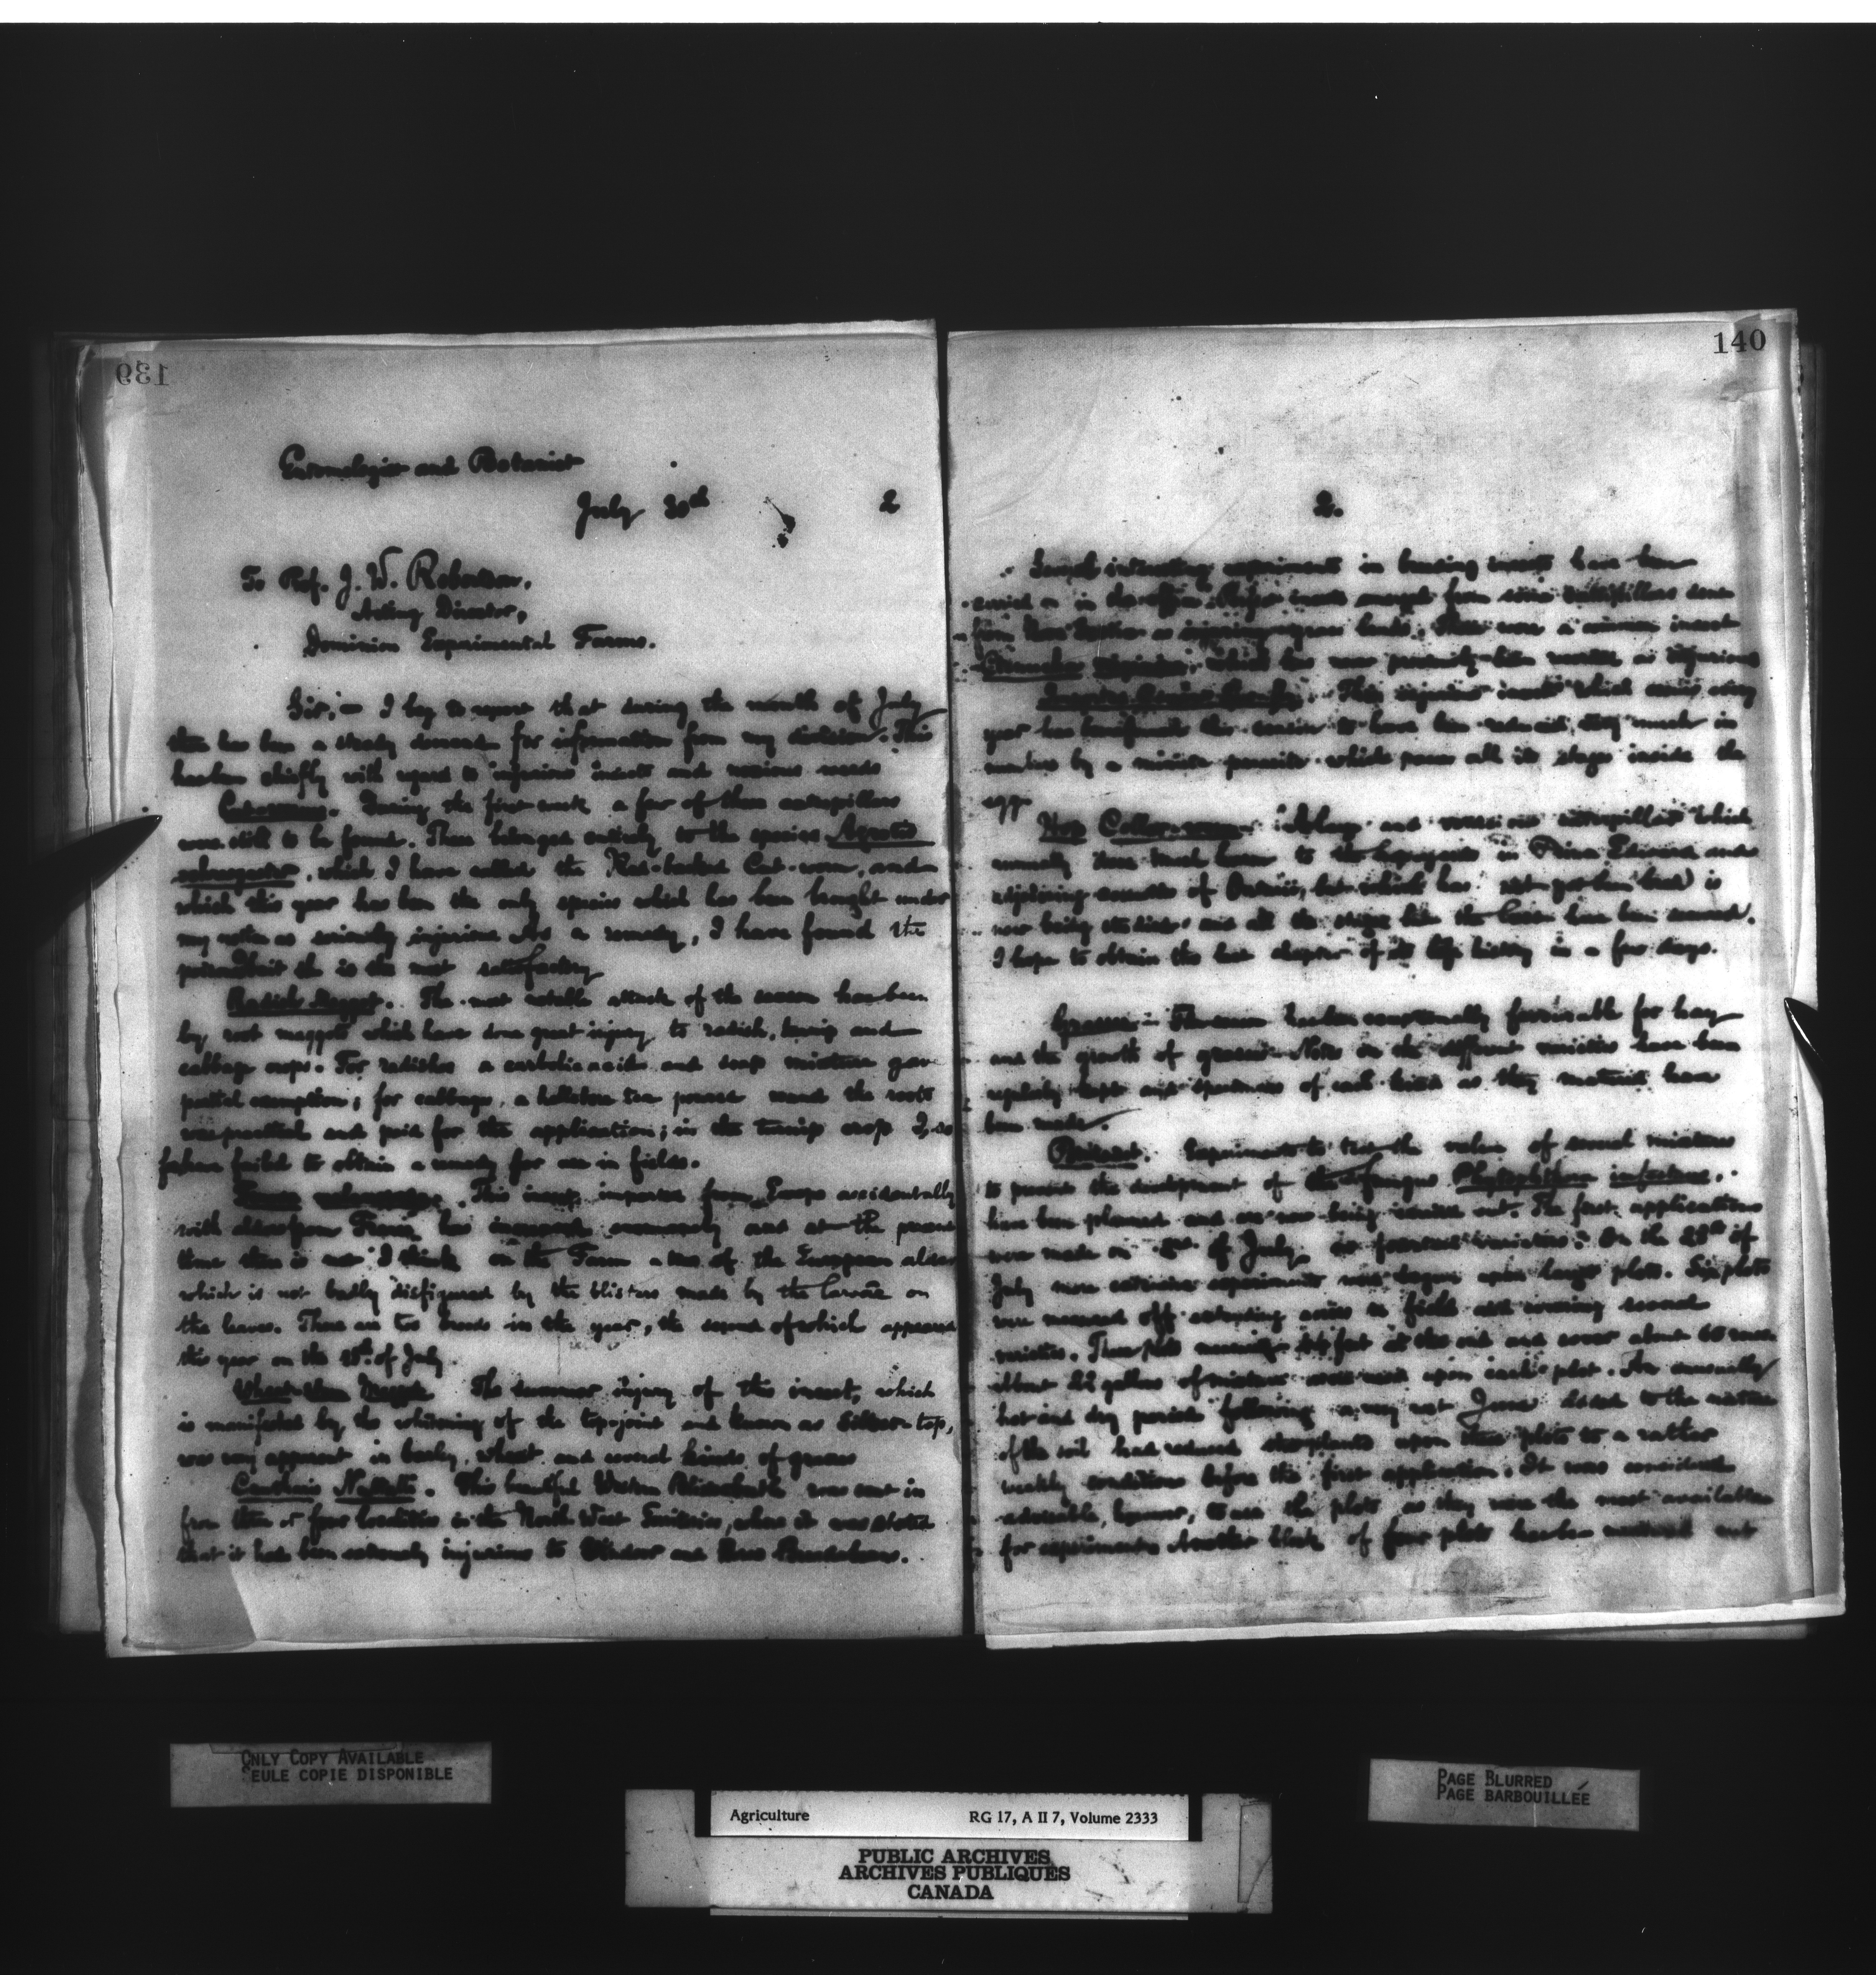 139
Entomologist and Botanist
July 30th 2
To Prof. J. W. Robertson,
Acting Director,
Dominion Experimental Farms.
Sir, I beg to report that during the month of July
there has been a steady demand for information from my division. This
has been chiefly with regard to injurious insects and noxious weeds
Cutworms. During the first week a few of these caterpillars
were still to be found. These belonged entirely to the species Agrotis
, which I have called the Red-backed Cut-worm, and
which this year has been the only species which has been brought under
my notice as seriously injurious. As a remedy, I have found the
is the most satisfactory
Radish Maggot. The most notable attack of the season has been
by root maggots which have done great injury to radish, turnip and
cabbage crops. For radishes a carbolic acid and soap mixture gave
partial exemption; for cabbages, a hellebore tea poured round the roots
was practical and paid for the application; in the turnip crop I so
far have failed to obtain a remedy for use in fields.
This insect, imported from Europe accidentally
with alders from France, has increased enormously and at the present
time there is not I think on the Farm a tree of the European alder
which is not badly disfigured by the blisters made by the larvae on
the leaves. There are two broods in the year, the second of which appeared
this year on the of July.
Wheat-stem Maggot The summer injury of this insect, which
is manifested by the whitening of the top-joint and known as Silver-top,
was very apparent in barley, wheat and several kinds of grasses
Cantharis Nuttalli. This beautiful Western Blister beetle was sent in
from three or four localities in the North West Territories, where it was stated
that it had been extremely injurious to Windsor and Bean.
140
2.
Several interesting experiments in breeding insects have been
carried on in the office. from some caterpillars sent
from as injuring grass lands. These were a common insect
which has not previously been recorded as injurious
This injurious insect which occurs every
year has been this season to have been reduced very much in
numbers by a minute parasite which passes all its stages inside the
egg.
Hop Collar-worm. A large and voracious caterpillar which
annually does much harm to the hopgrowers in Prince Edward and
adjoining counties of Ontario, but which has not yet been bred is
now being studied and all the stages but the have been secured.
I hope to obtain the last chapter of its life history in a few days.
Grasses. The season has been unusually favourable for hay
and the growth of grasses. Notes on the different varieties have been
regularly kept and specimens of each kind as they matured have
been made.
Experiments to test the value of several mixtures
to prevent the development of the fungus Phytophthora infestans,
have been planned and are now being carried out. The first applications
were made on of July on varieties. On the of
July more extensive experiments were begun upon larger plots. Six plots
were measured off extending across the field and covering several
varieties. These plots measure feet at the end and cover about 60 rows
About 22 gallons of mixture were used upon each plot. An unusually
hot and dry period following a very wet June added to the nature
of the soil had reduced the plants upon these plots to a rather
weakly condition before the first application. It was considered
advisable, however, to use the plots as they were the most available
for experiments. Another block of four plots has been measured out
ONLY COPY AVAILABLE
SEULE COPIE DISPONIBLE
PAGE BLURRED
PAGE BARBOUILLÉE
Agriculture RG 17, A II 7, Volume 2333
PUBLIC ARCHIVES
ARCHIVES PUBLIQUES
CANADA